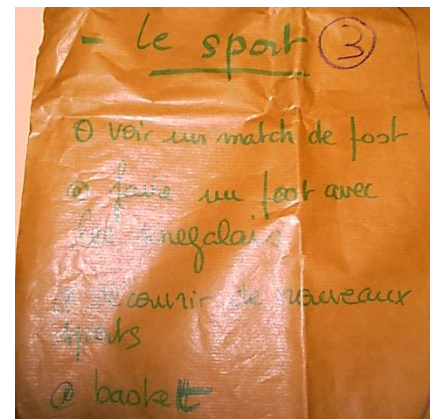 - le sport 3
voir un match de foot
faire un foot avec
les senegalais
decouvrir de nouveaux
sports
basket